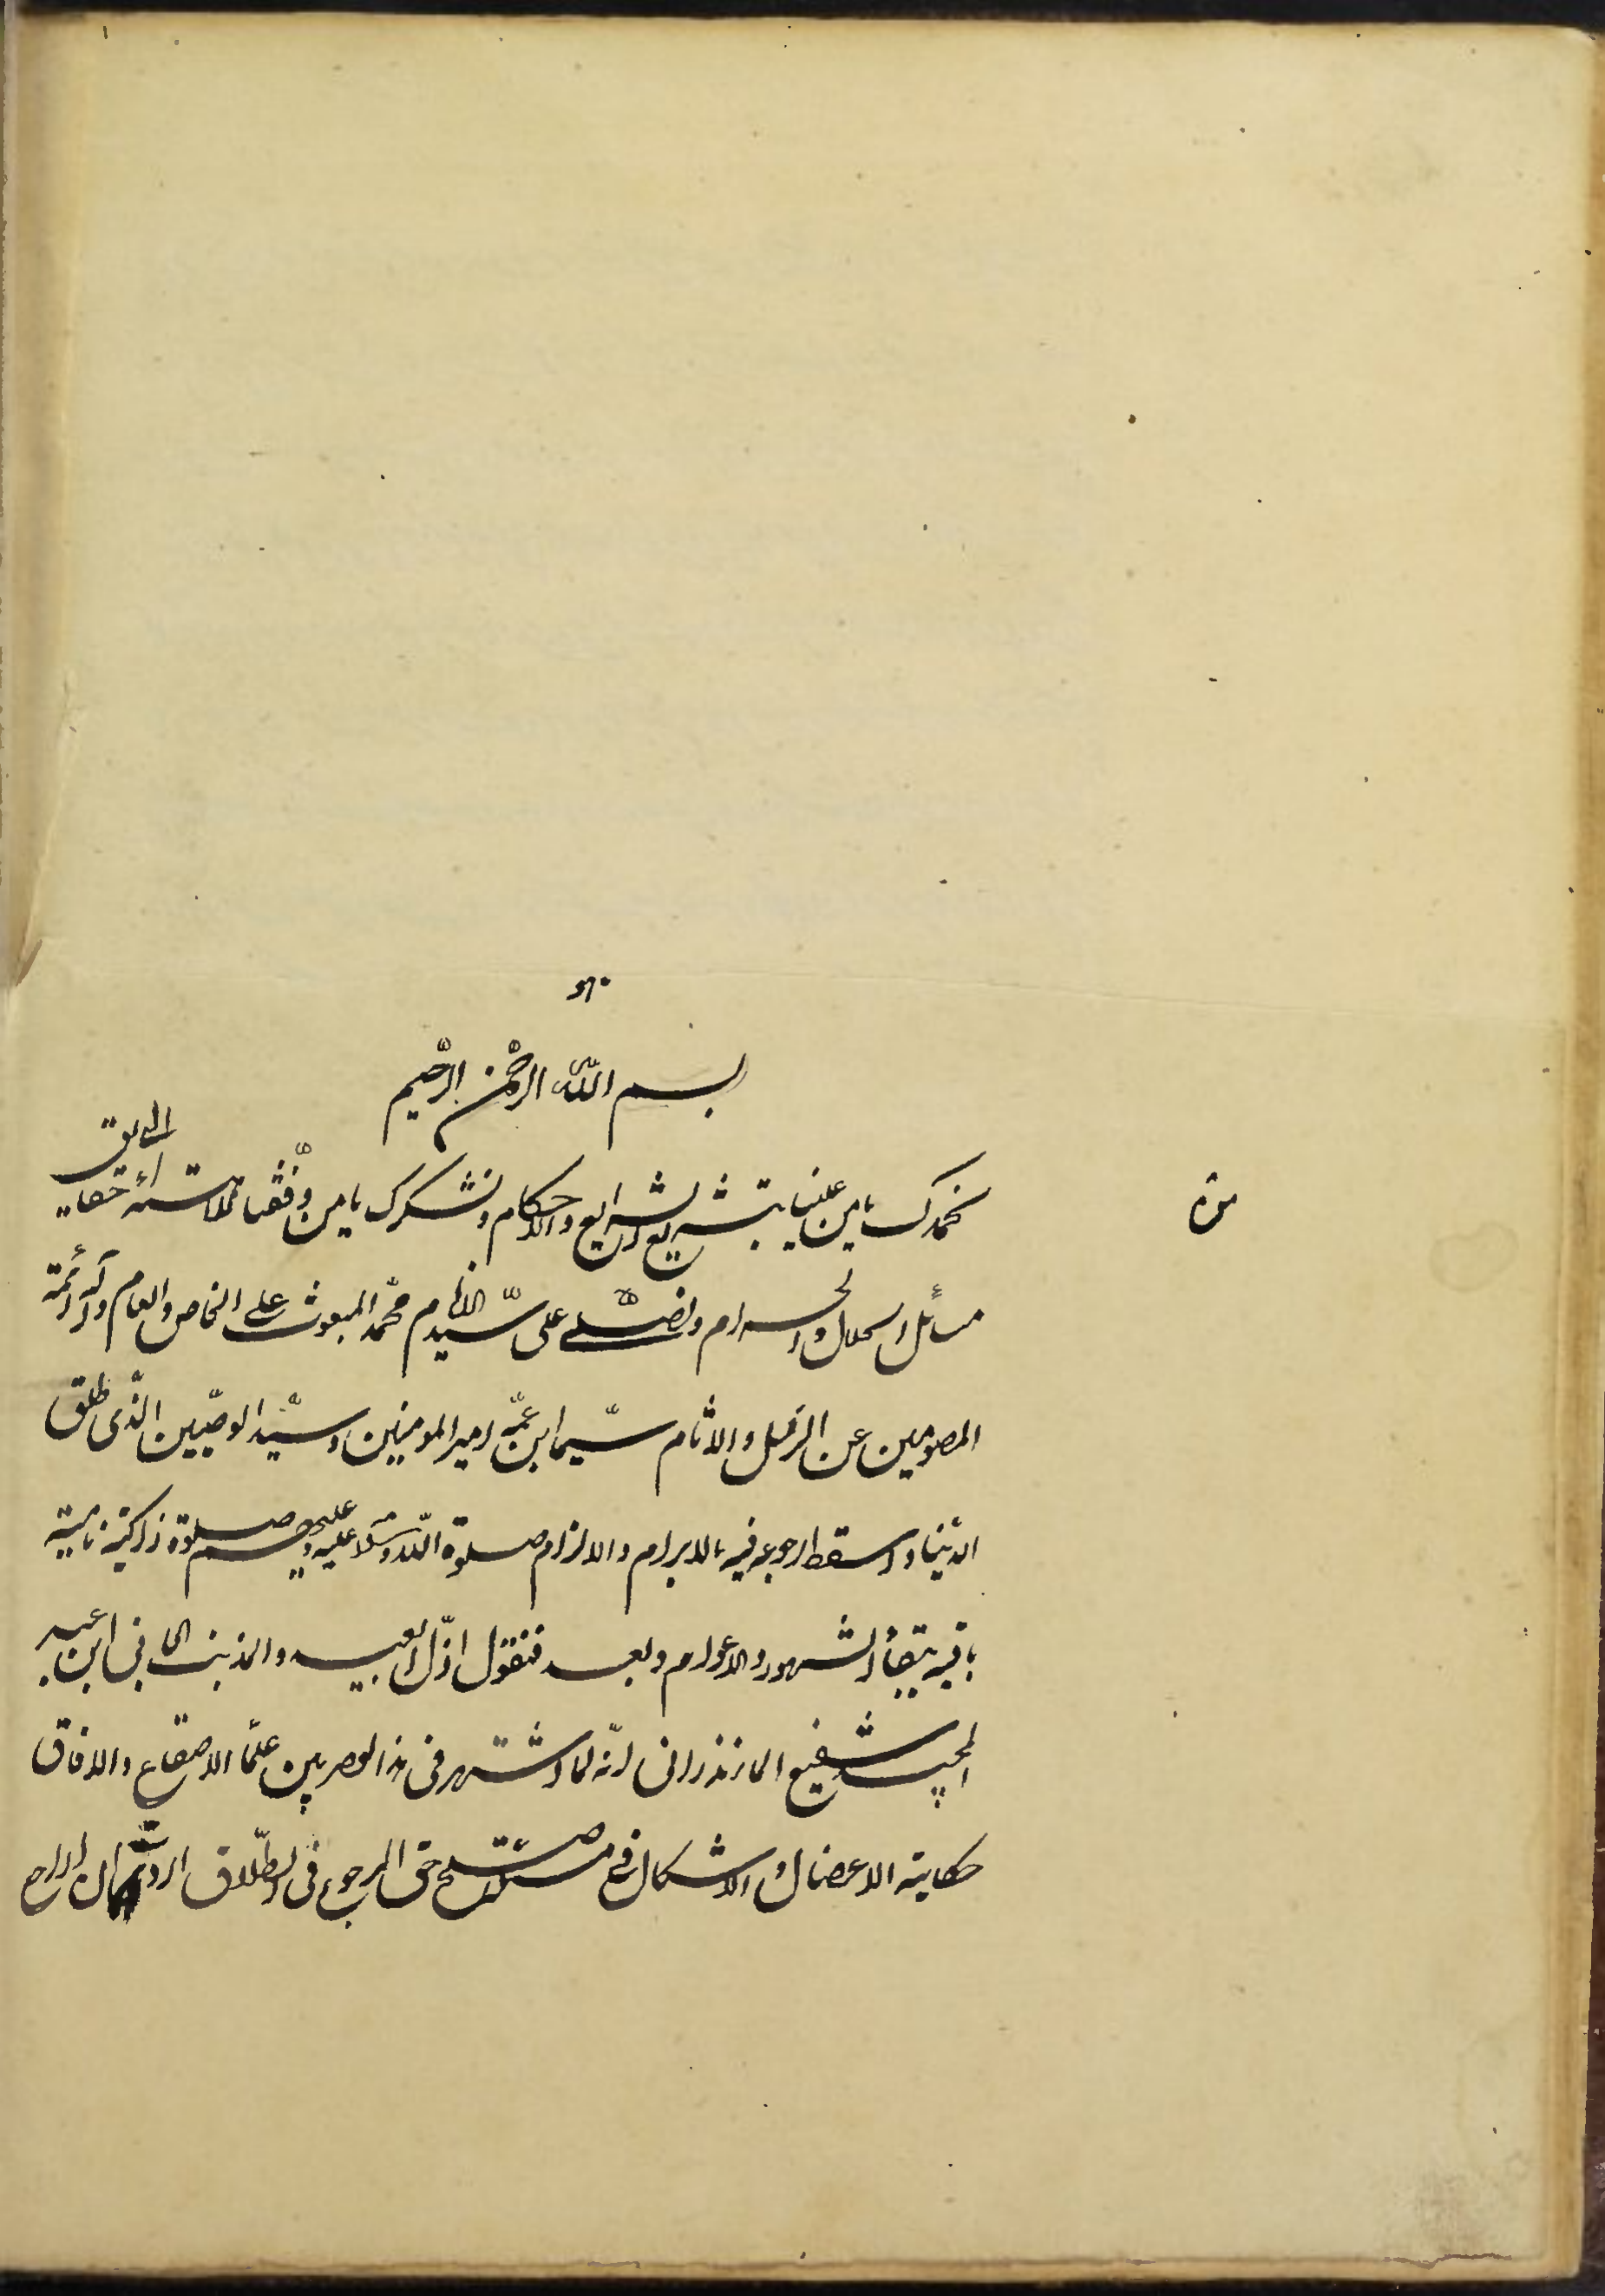 هو
بسم اللّه الرّحمن الرّحيم
نحمدك يا من علينا بتشريع الشرايع والاحكام ونشكرك يا من وفّقنا لاستنارة حقايق
مسائل الحلال والحرام ونصلّے على سيّد الانام محمّد المبعوث علے الخاص والعام وآله أئمة
المعصومين عن الزلل والاثام سيّما ابن عمّه امير المومنين وسيّد الوصيّين الّذى طلق
الدّنيا واسقط الرجوع فيه بالابرام والالزام صلوة اللّه وسلامه عليه وعليهم صلوة زاكية نامية
باقية ببقاء الشهور والاعوام وبعد فنقول اذلّ العبيد والمذنب الجانى ابن عبد
المجيد شفيع المازندرانى انّه لما اشتهر فى هذا العصر بين علمآء الاصقاع والافاق
حكاية الاعضال والاشكال فى مسئلة صلح حق الرجوع فى الطّلاق اردت
من